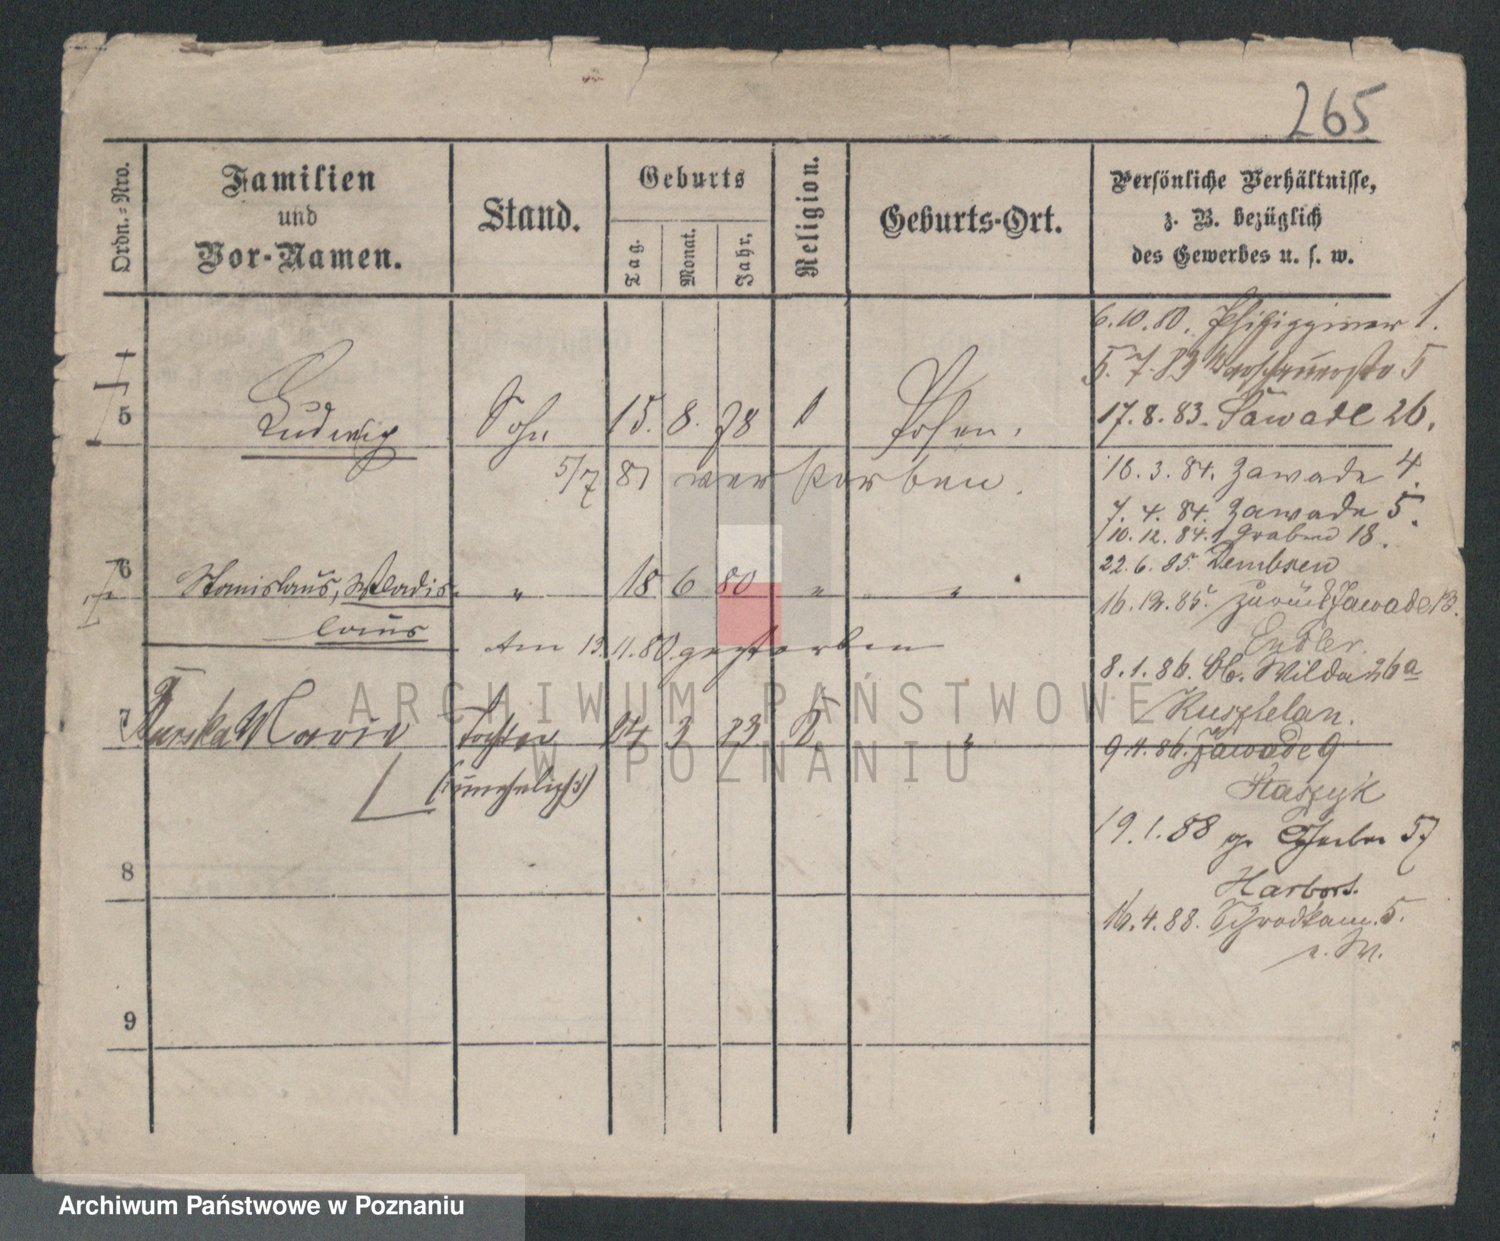 265
Ordn.-Nro.
Familien
und
Vor-Namen.
Stand.
Geburts
Tag.
Monat.
Jahr.
Religion.
Geburts-Ort.
Persönliche Verhältnisse,
z. B. bezüglich
des Gewerbes u. s. w.
6.10.80. 1.
5. 7. 83 5
5 Ludwig Sohn 15. 8. 78 Posen.
17. 8. 83. Zawade 26.
5/7 81 verstorben.
18. 3. 84. Zawade 4.
7. 4. 84. Zawade 5.
10. 12. 84. Graben 18.
22. 6. 85. Dembsen
6 Stanislaus, Wladis- " 18 6 80 " "
laus
16. 12. 85. zurück Zawade 13.
Am 13. 11. 80. gestorben
Endler.
8. 1. 86. Ob. Wilda 26a
7 Marie Tochter 24 3 73 "
(unehelich)
9. 4. 86. Zawade 9
Staszyk
19. 1. 88 gr. Gerber 57
8
Harbort.
16. 4. 88. 5.
9
ARCHIWUM PAŃSTWOWE
W POZNANIU
Archiwum Państwowe w Poznaniu